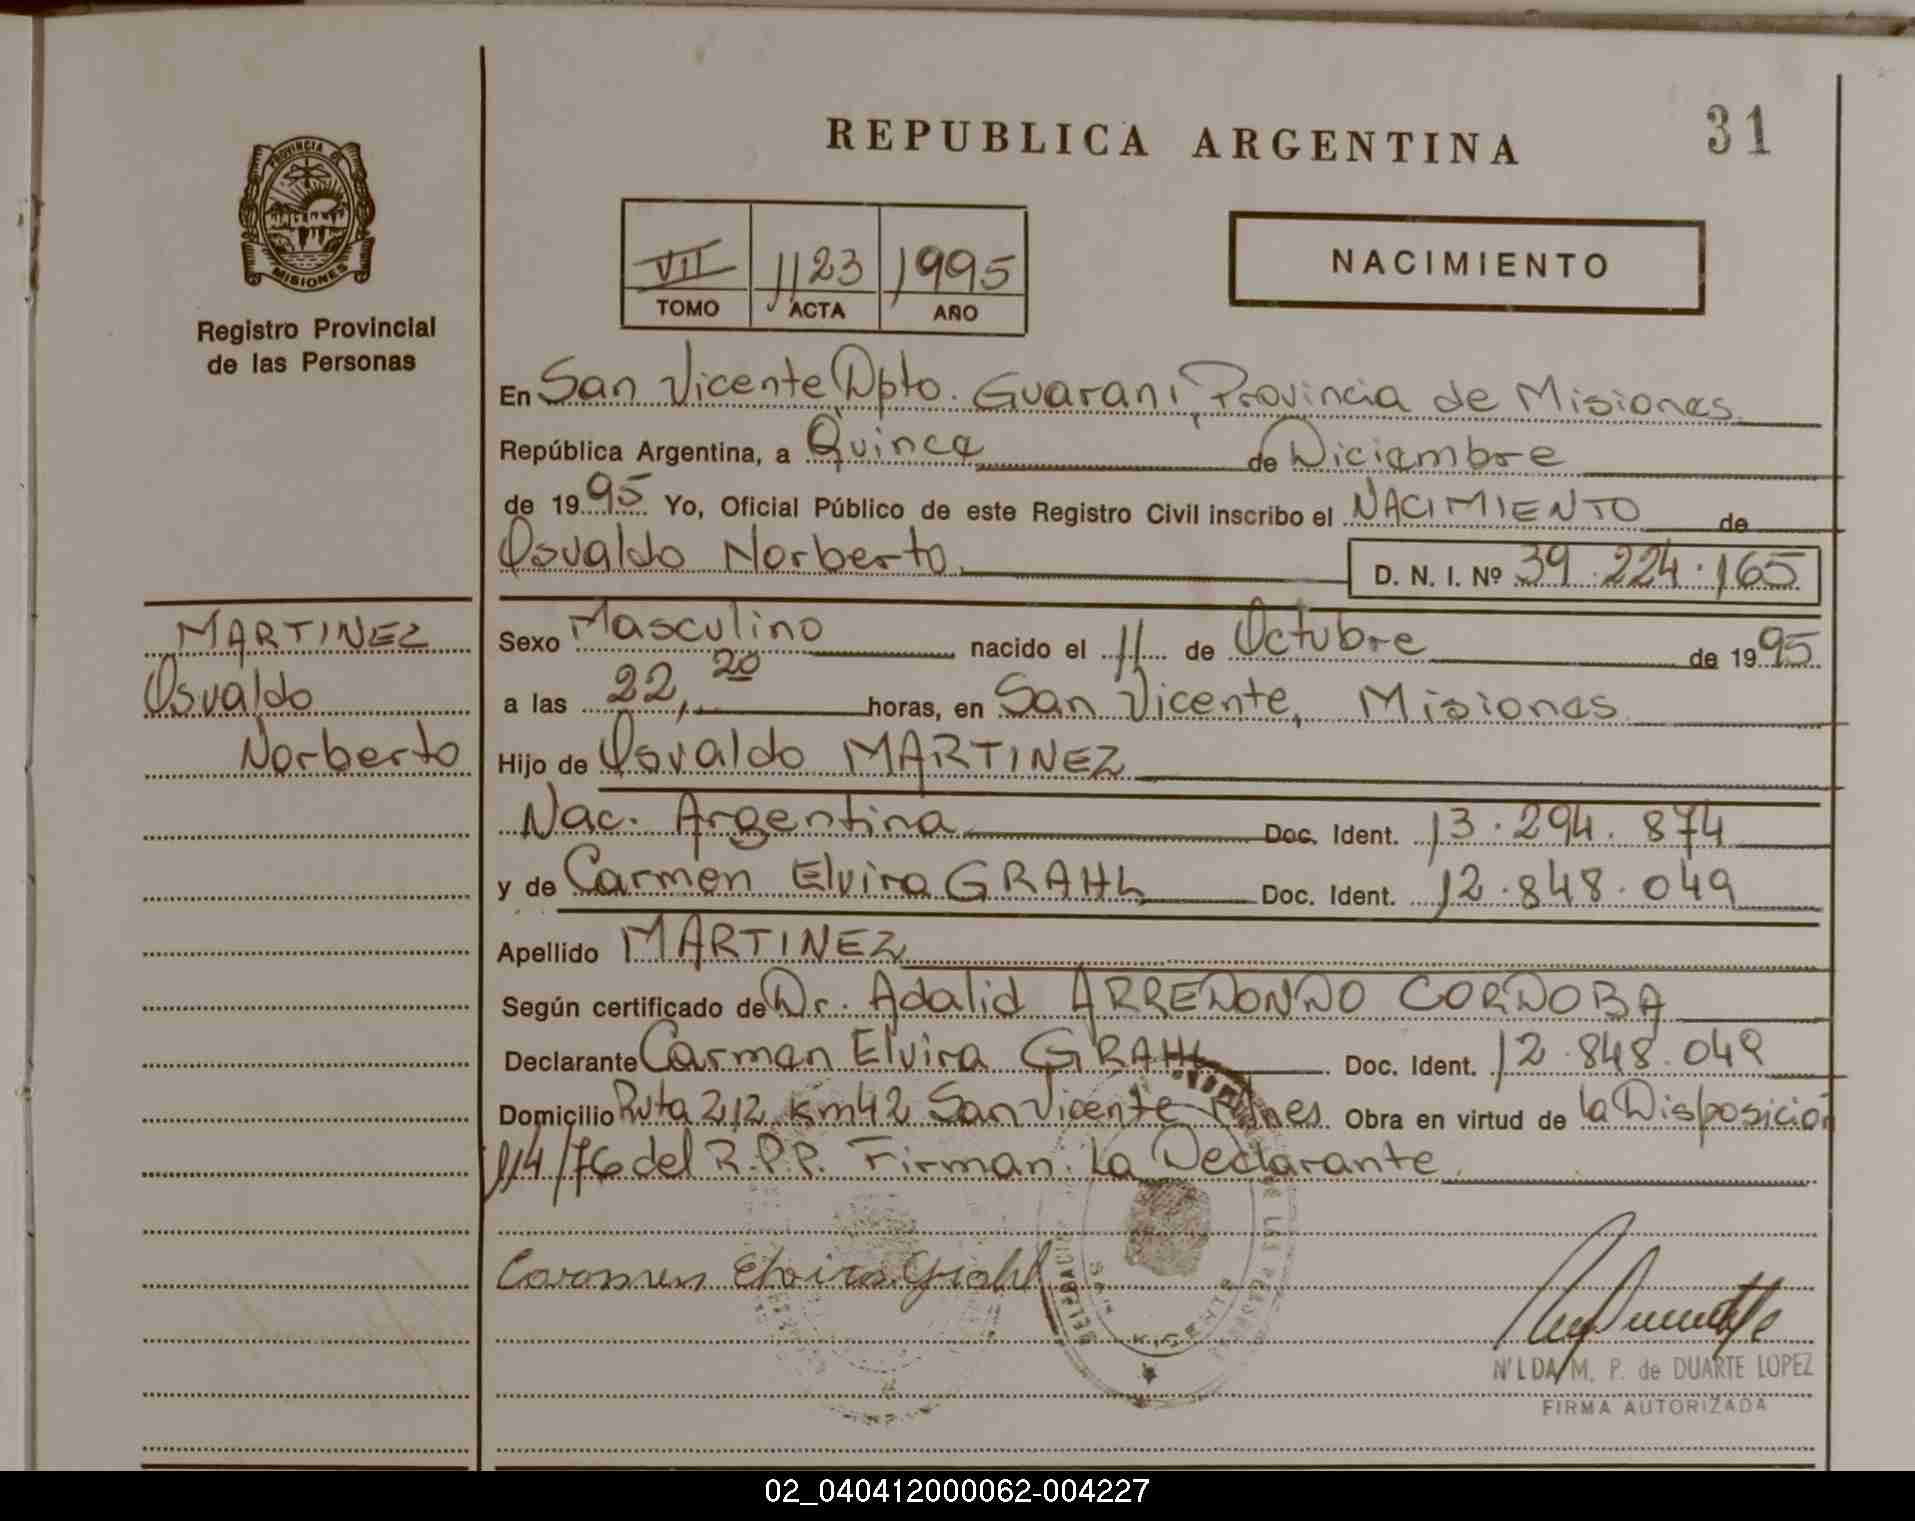 REPUBLICA ARGENTINA
31
PROVINCIA DE
MISIONES
Registro Provincial
de las Personas
VII 1123 1995
TOMO ACTA AÑO
NACIMIENTO
En San Vicente Dpto. Guarani, Provincia de Misiones
República Argentina, a Quince de Diciembre
de 1995 Yo, Oficial Público de este Registro Civil inscribo el NACIMIENTO de
Osvaldo Norberto D. N. I. Nº 39.224.165
MARTINEZ
Osvaldo
Norberto
Sexo Masculino nacido el 11 de Octubre de 1995
a las 22,20 horas, en San Vicente, Misiones
Hijo de Osvaldo MARTINEZ
Nac. Argentina Doc. Ident. 13.294.874
y de Carmen Elvira GRAHL Doc. Ident. 12.848.049
Apellido MARTINEZ
Según certificado de Dr. Adalid ARREDONDO CORDOBA
Declarante Carmen Elvira GRAHL Doc. Ident. 12.848.049
Domicilio Ruta 212 Km 42 San Vicente Mnes. Obra en virtud de la Disposición
114/76 del R.P.P. Firman: La Declarante
Carmen Elvira Grahl
NILDA M. P. de DUARTE LOPEZ
FIRMA AUTORIZADA
02_040412000062-004227